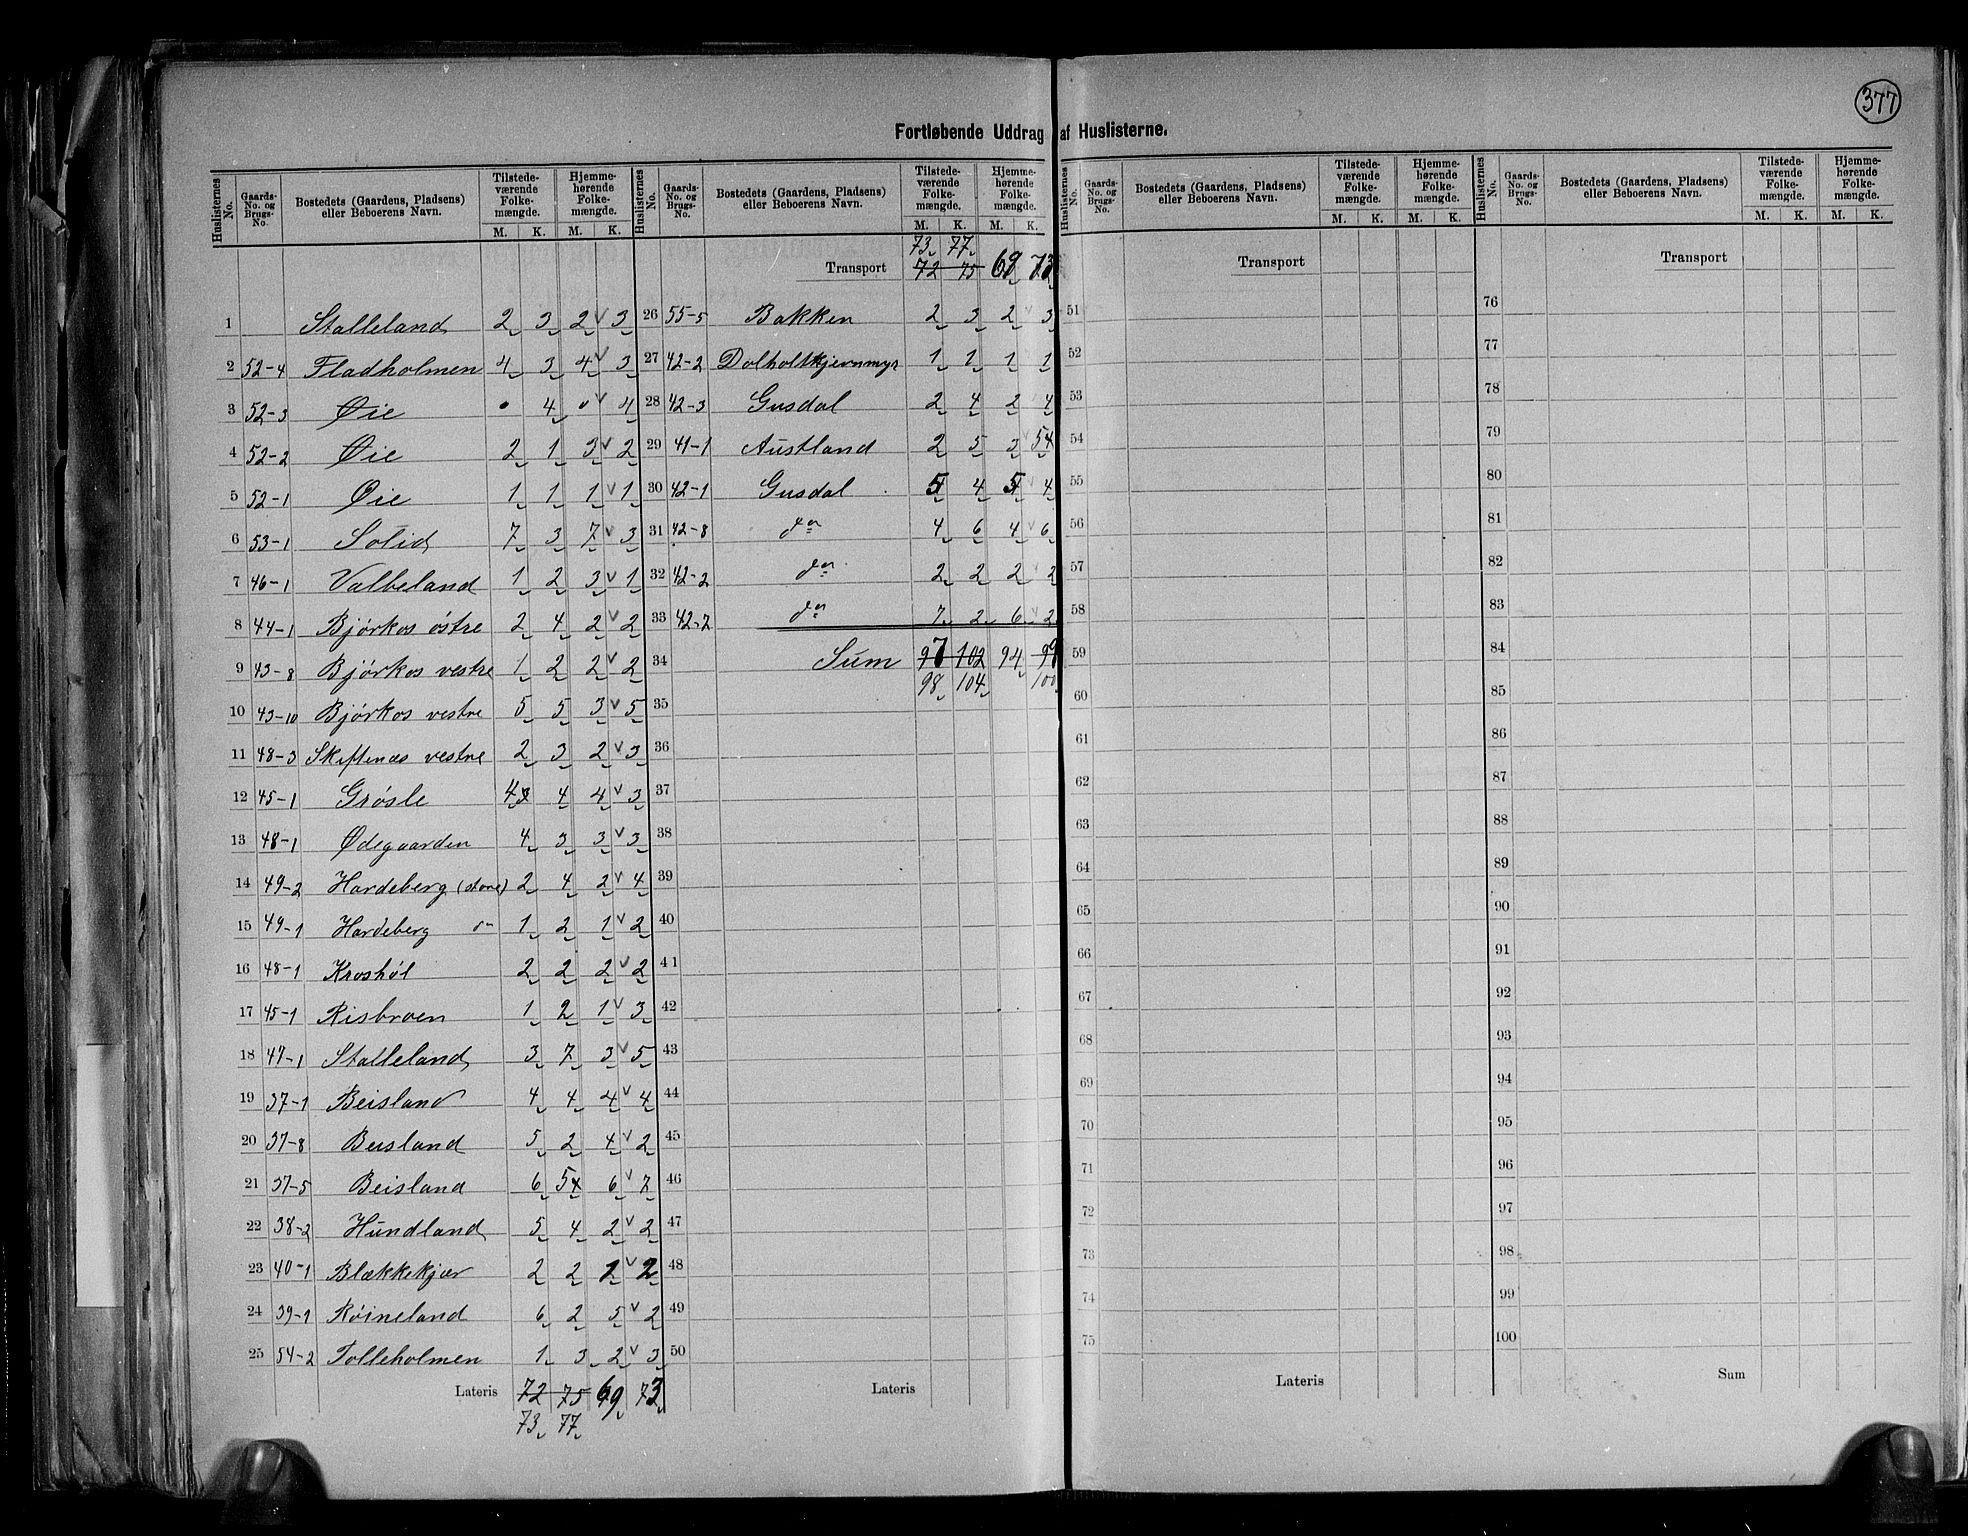 377
Fortløbende Uddrag af Huslisterne.
Huslisternes No. Gaards-No. og Brugs-No. Bostedets (Gaardens, Pladsens) eller Beboerens Navn. Tilstedeværende Folkemængde. M. K. Hjemmehørende Folkemængde. M. K.
Huslisternes No. Gaards-No. og Brugs-No. Bostedets (Gaardens, Pladsens) eller Beboerens Navn. Tilstedeværende Folkemængde. M. K. Hjemmehørende Folkemængde. M. K.
Huslisternes No. Gaards-No. og Brugs-No. Bostedets (Gaardens, Pladsens) eller Beboerens Navn. Tilstedeværende Folkemængde. M. K. Hjemmehørende Folkemængde. M. K.
Huslisternes No. Gaards-No. og Brugs-No. Bostedets (Gaardens, Pladsens) eller Beboerens Navn. Tilstedeværende Folkemængde. M. K. Hjemmehørende Folkemængde. M. K.
1 Stalleland 2 3 2 v 3
2 52-4 Fladholmen 4 3 4 v 3
3 52-3 Øie • 4 • v 4
4 52-2 Øie 2 1 3 v 2
5 52-1 Øie 1 1 1 v 1
6 53-1 Solid 7 3 7 v 3
7 46-1 Valbeland 1 2 3 v 1
8 44-1 Bjørkos østre 2 4 2 v 2
9 43-8 Bjørkos vestre 1 2 2 v 2
10 43-10 Bjørkos vestre 5 5 3 v 5
11 48-3 Skiftenæs vestre 2 3 2 v 3
12 45-1 Grøsle 4 4 4 v 3
13 48-1 Ødegaarden 4 3 3 v 3
14 49-2 Hardeberg (store) 2 4 2 v 4
15 49-1 Hardeberg do 1 2 1 v 2
16 48-1 Kroshøl 2 2 2 v 2
17 45-1 Risbroen 1 2 1 v 3
18 47-1 Stalleland 3 7 3 v 5
19 37-1 Beisland 4 4 4 v 4
20 37-8 Beisland 5 2 4 v 2
21 37-5 Beisland 6 5 6 v 7
22 38-2 Hundland 5 4 2 v 2
23 40-1 Blækkekjær 2 2 1 v 2
24 39-1 Røineland 6 2 5 v 2
25 54-2 Tolleholmen 1 3 2 v 3
Lateris 72 75 69 73
73 77
73 77
Transport 72 75 69 73
26 55-5 Bakken 2 3 2 v 3
27 42-2 Dolholtkjernmyr 1 1 1 1
28 42-3 Gusdal 2 4 2 4
29 41-1 Austland 2 5 3 v 5
30 42-1 Gusdal 5 4 5 v 4
31 42-8 do 4 6 4 v 6
32 42-2 do 2 2 2 2
33 42-2 do 7 2 6 v 2
34 Sum 97 102 94 99
98 104 100
35
36
37
38
39
40
41
42
43
44
45
46
47
48
49
50
Lateris
Transport
51
52
53
54
55
56
57
58
59
60
61
62
63
64
65
66
67
68
69
70
71
72
73
74
75
Lateris
Transport
76
77
78
79
80
81
82
83
84
85
86
87
88
89
90
91
92
93
94
95
96
97
98
99
100
Sum